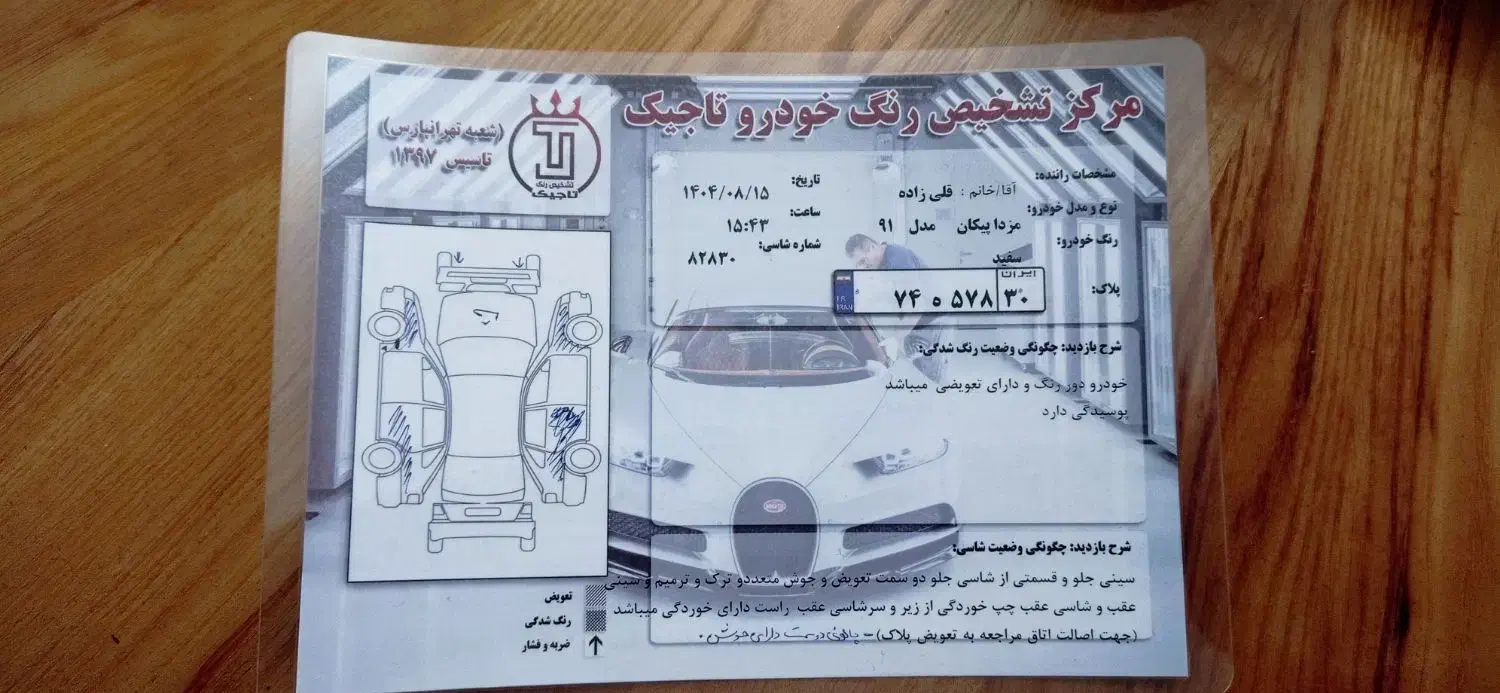 مرکز تشخیص رنگ خودرو تاجیک
(شعبه تهرانپارس)
تاسیس ۱۳۹۷
تشخیص رنگ
تاجیک
مشخصات راننده:
آقا/خانم : قلی زاده
نوع و مدل خودرو:
مزدا پیکان مدل ۹۱
رنگ خودرو:
سفید
پلاک:
ایران
۷۴ ه ۵۷۸ ۳۰
I.R.
IRAN
تاریخ:
۱۴۰۴/۰۸/۱۵
ساعت:
۱۵:۴۳
شماره شاسی:
۸۲۸۳۰
شرح بازدید: چگونگی وضعیت رنگ شدگی:
خودرو دور رنگ و دارای تعویضی میباشد
پوسیدگی دارد
شرح بازدید: چگونگی وضعیت شاسی:
سینی جلو و قسمتی از شاسی جلو دو سمت تعویض و جوش متعددو ترک و ترمیم و سینی
عقب و شاسی عقب چپ خوردگی از زیر و سرشاسی عقب راست دارای خوردگی میباشد
(جهت اصالت اتاق مراجعه به تعویض پلاک) - دارای جوش .
تعویض
رنگ شدگی
ضربه و فشار